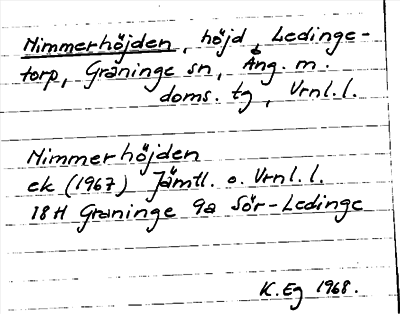 Nimmerhöjden, höjd, Ledinge-
torp, Graninge sn, Ång. m.
doms. tg, Vrnl.l.
Nimmerhöjden
ek (1967) Jämtl. o. Vrnl.l.
18H Graninge 9a Sör-Ledinge
K. Eg 1968.